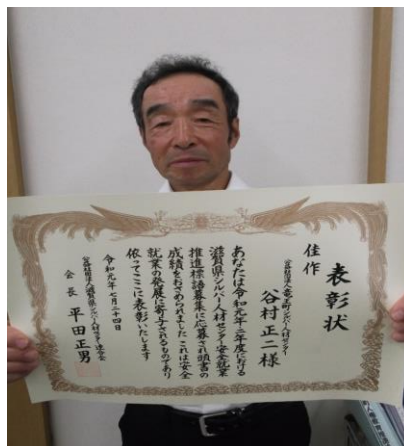 表彰状
佳作
公益社団法人竜王町シルバー人材センター
谷村正二様
あなたは令和元年二年度における
滋賀県シルバー人材センター安全就業
推進標語募集に応募され頭書の
成績をおさめられましたこれは安全
就業の発展に寄与されるものであり
依ってここに表彰いたします
令和元年七月二十四日
公益社団法人滋賀県シルバー人材センター連合会
会長 平田正男